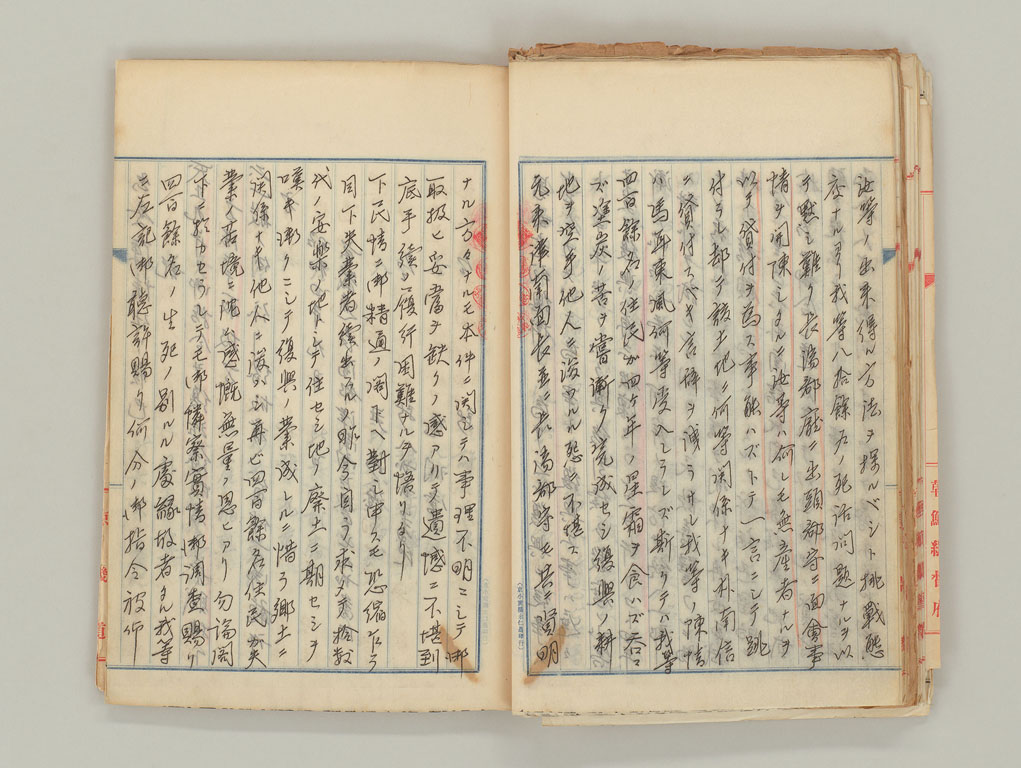 汝等ノ出来得ル方法ヲ採ルベシト挑戦態
度ナルヨリ我等八拾餘戸ノ死活問題ナルヲ以
テ黙シ難ク長湍郡廳ニ出頭郡守ニ面會事
情ヲ開陳シタルニ汝等ハ何レモ無産者ナルヲ
以テ貸付ヲ為ス事能ハズトテ一言ニシテ跳
付ラレ却テ該土地ニ何等関係ナキ朴南信
ニ貸付スベキ言辞ヲ洩ラサレ我等ノ陳情
ハ馬耳東風何等受入レラレズ斯クテハ我等
四百餘名ノ住民カ四ケ年ノ星霜ヲ食ハズ呑マ
ズ塗炭ノ苦ヲ嘗漸ク完成セシ復興ノ耕
地ヲ空手他人ニ渡ハルル怨ニ不堪ス
元来津南面長並ニ長湍郡守モ共ニ賢明
ナル方々ナルモ本件ニ関シテハ事理不明ニシテ御
取扱ヒ妥當ヲ缺クノ感アリテ遺憾ニ不堪到
底手續ノ履行困難ナルヲ悟リタリ
下民情ニ御精通ノ閣下ヘ對シ申スモ恐縮乍ラ
目下失業者續出シルノ昨今自ラ求メテ拾数
代ノ安樂ノ地トシテ住セシ地ノ廢土ニ期セシヲ
嘆キ漸クニシテ復興ノ業成レルニ惜ラ郷土ニ
関係ナキ他人ニ渡シ再ビ四百餘名住民カ失
業ノ苦境ニ沈ム感慨無量ノ思ヒアリ勿論閣
下ニ於カセラレテモ御憐察實情御調査賜リ
四百餘名ノ生死ノ別ルル處縁故者タル我等
ニ左記御聽許賜リ何分ノ御指令被仰